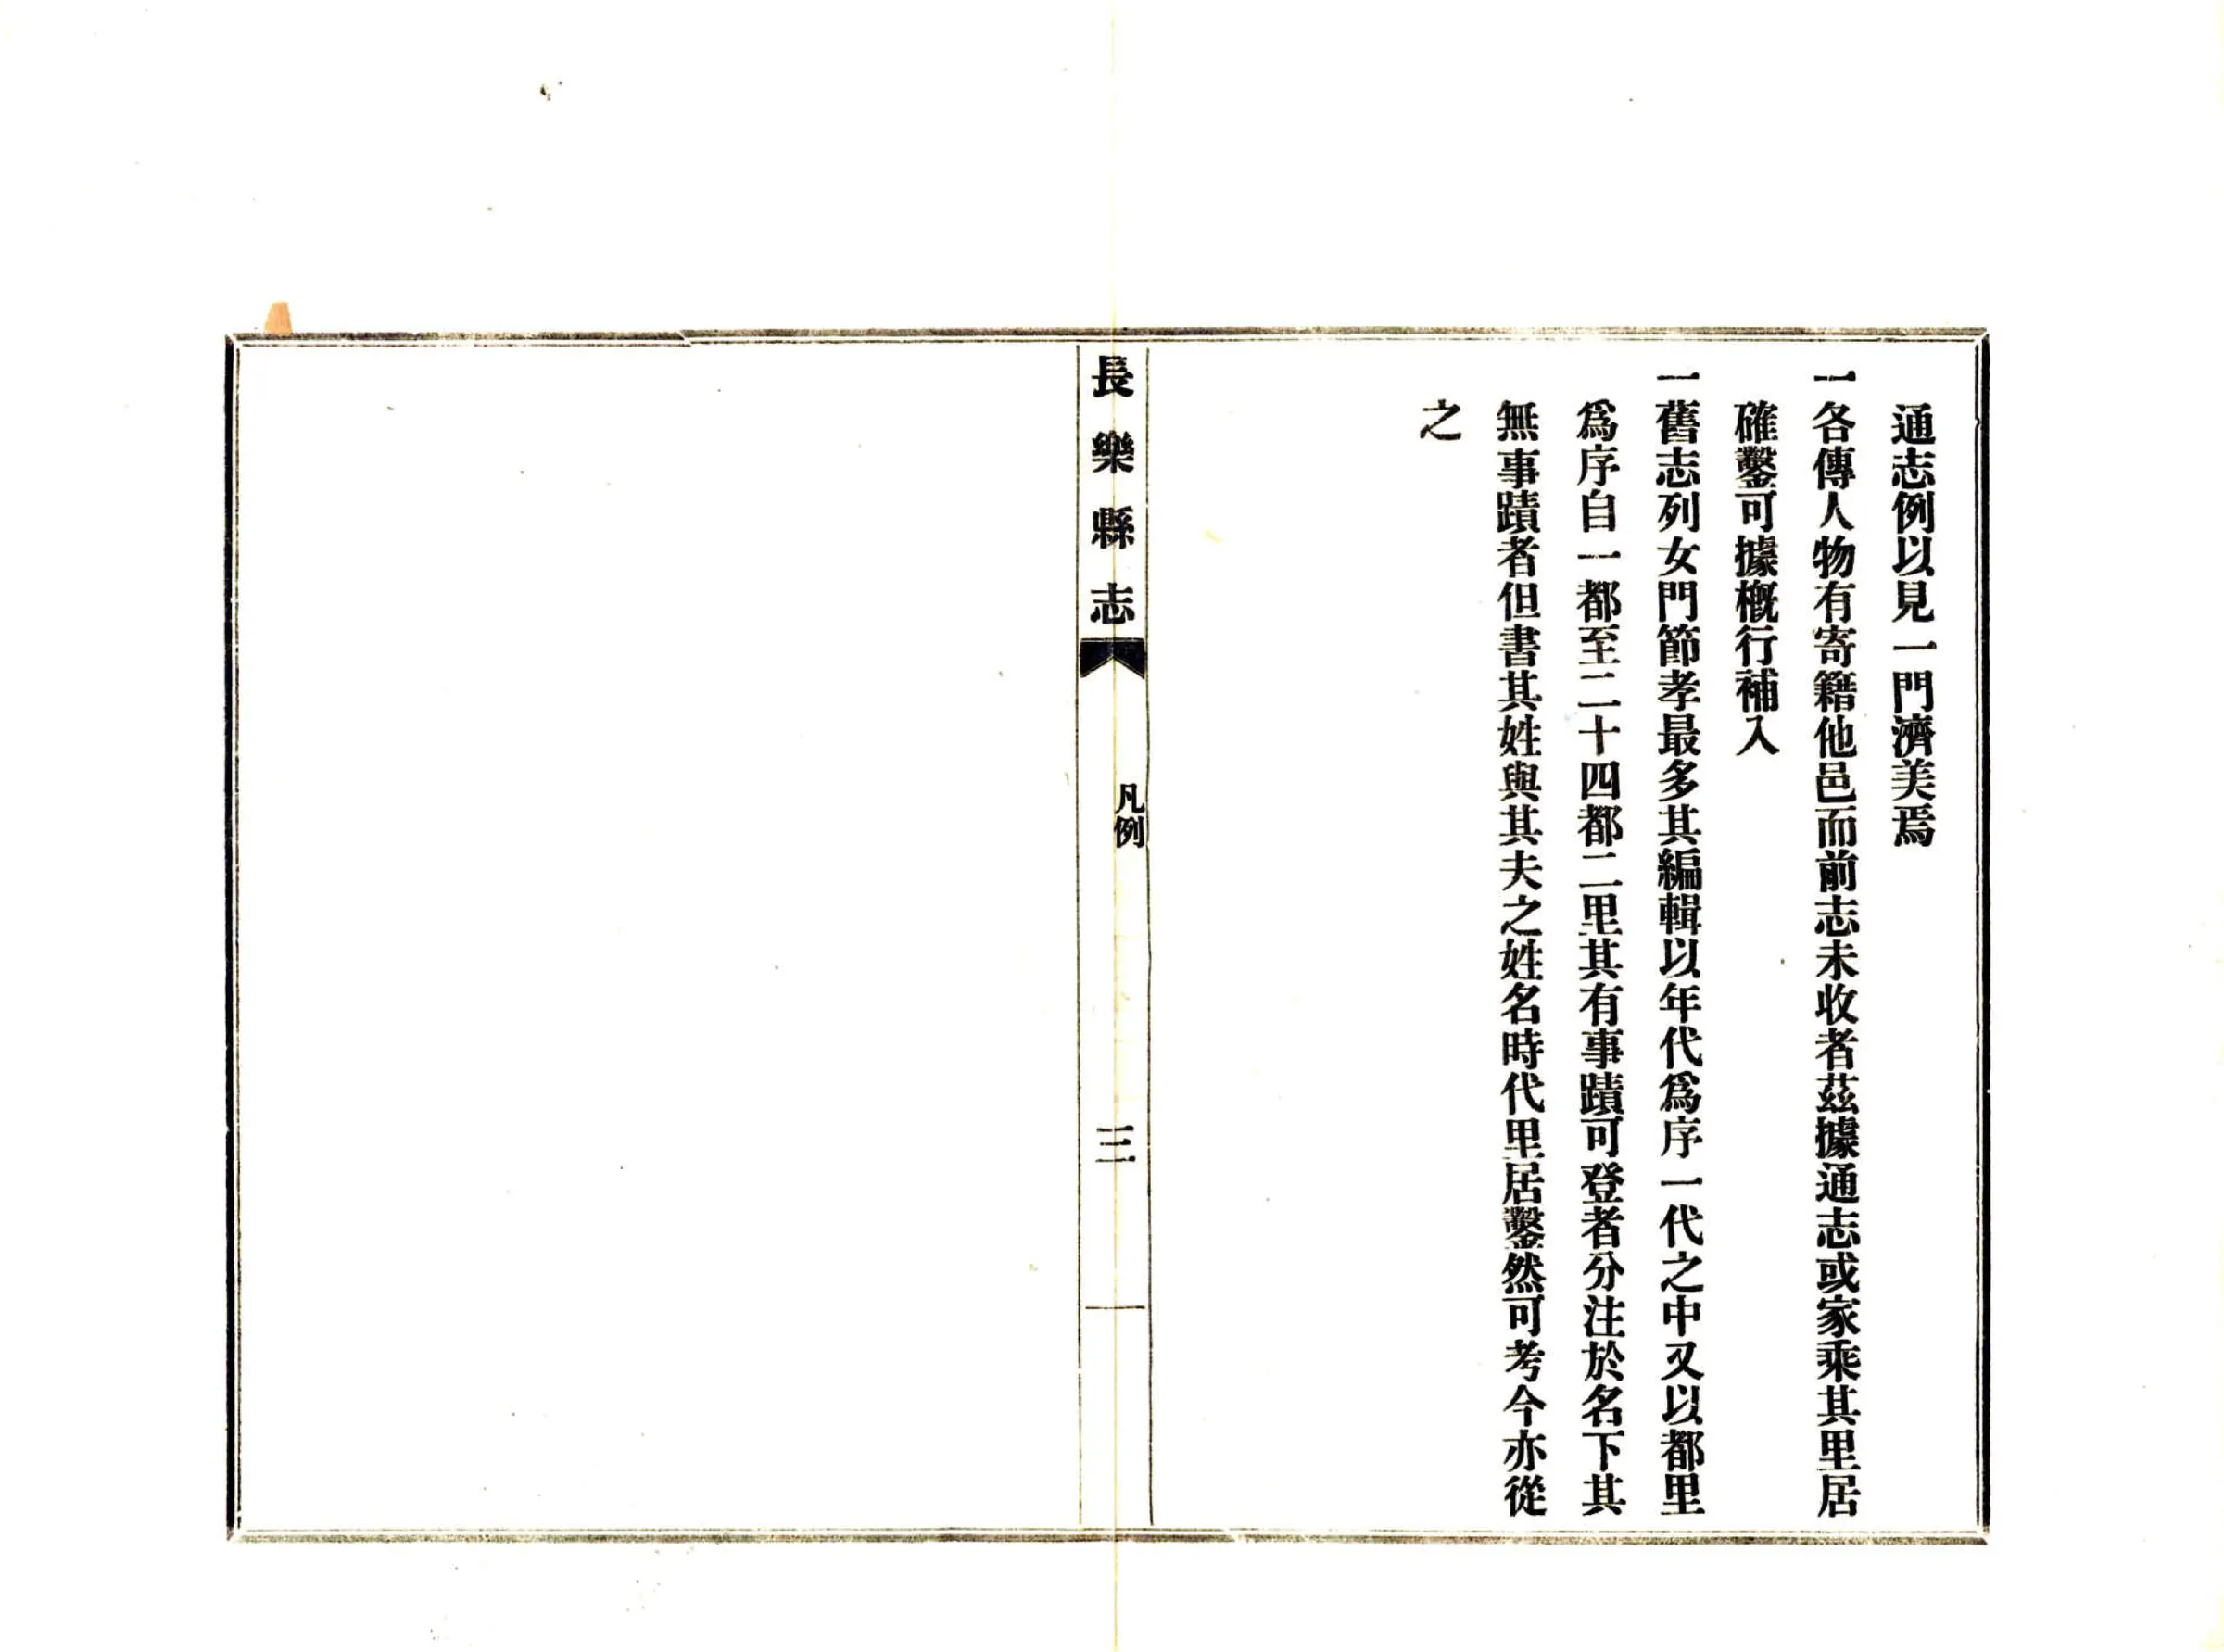 通志例以見一門濟美焉
一各傳人物有寄籍他邑而前志未收者茲據通志或家乘其里居
確鑿可據槪行補入
一舊志列女門節孝最多其編輯以年代爲序一代之中又以都里
爲序自一都至二十四都二里其有事蹟可登者分注於名下其
無事蹟者但書其姓與其夫之姓名時代里居鑿然可考今亦從
之
長樂縣志
凡例
三